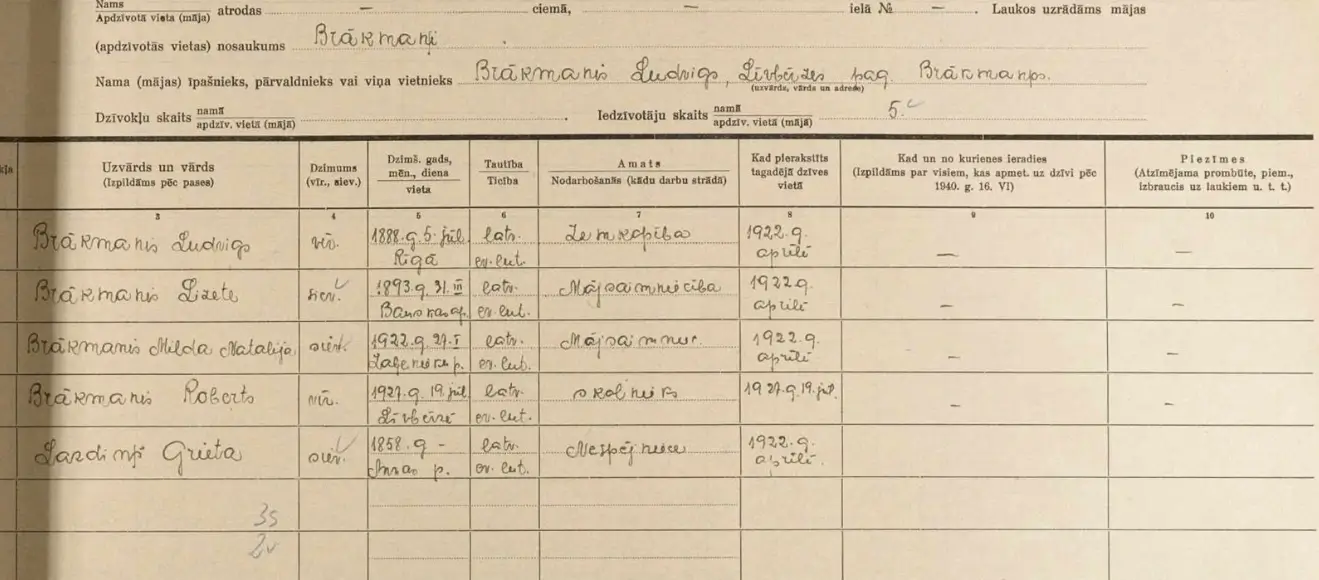 Nams
Apdzīvotā vieta (māja) atrodas — ciemā, — ielā № — . Laukos uzrādāms mājas
(apdzīvotās vietas) nosaukums Brākmaņi
Nama (mājas) īpašnieks, pārvaldnieks vai viņa vietnieks Brākmanis Ludvigs, Līvbērzes pag. Brākmaņos.
(uzvārds, vārds un adrese)
Dzīvokļu skaits namā apdzīv. vietā (mājā) . Iedzīvotāju skaits namā apdzīv. vietā (mājā) 5.
Uzvārds un vārds (Izpildāms pēc pases) Dzimums (vīr., siev.) Dzimš. gads, mēn., diena vieta Tautība Ticība Amats Nodarbošanās (kādu darbu strādā) Kad pierakstīts tagadējā dzīves vietā Kad un no kurienes ieradies (Izpildāms par visiem, kas apmet. uz dzīvi pēc 1940. g. 16. VI) Piezīmes (Atzīmējama prombūte, piem., izbraucis uz laukiem u. t. t.)
3 4 5 6 7 8 9 10
Brākmanis Ludvigs vīr. 1888.g. 5. jūl. latv. Zemkopība 1922.g.
Rīgā ev. lut. aprīlī — —
Brākmanis Lizete siev. 1893.g. 31. III latv. Mājsaimniecība 1922.g.
ev. lut. aprīlī — —
Brākmanis Milda Natalija siev. 1922.g. 27. I latv. Mājsaimn. 1922.g.
p. ev. lut. aprīlī — —
Brākmanis Roberts vīr. 1927.g. 19. jūl. latv. skolnieks 1927.g. 19. jūl.
Līvbērzē ev. lut. — —
Lazdiņš Grieta siev. 1858.g. - latv. Nespējniece 1922.g.
p. ev. lut. aprīlī.
3s
2v